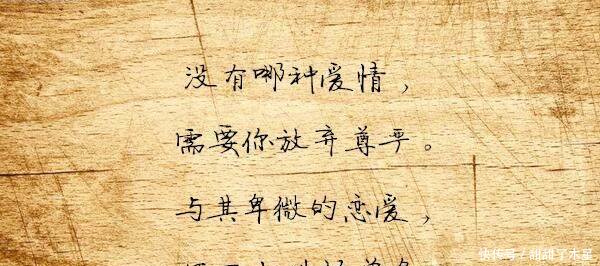 没有哪种爱情，
需要你放弃尊严。
与其卑微的恋爱，
快传号／甜甜了木星